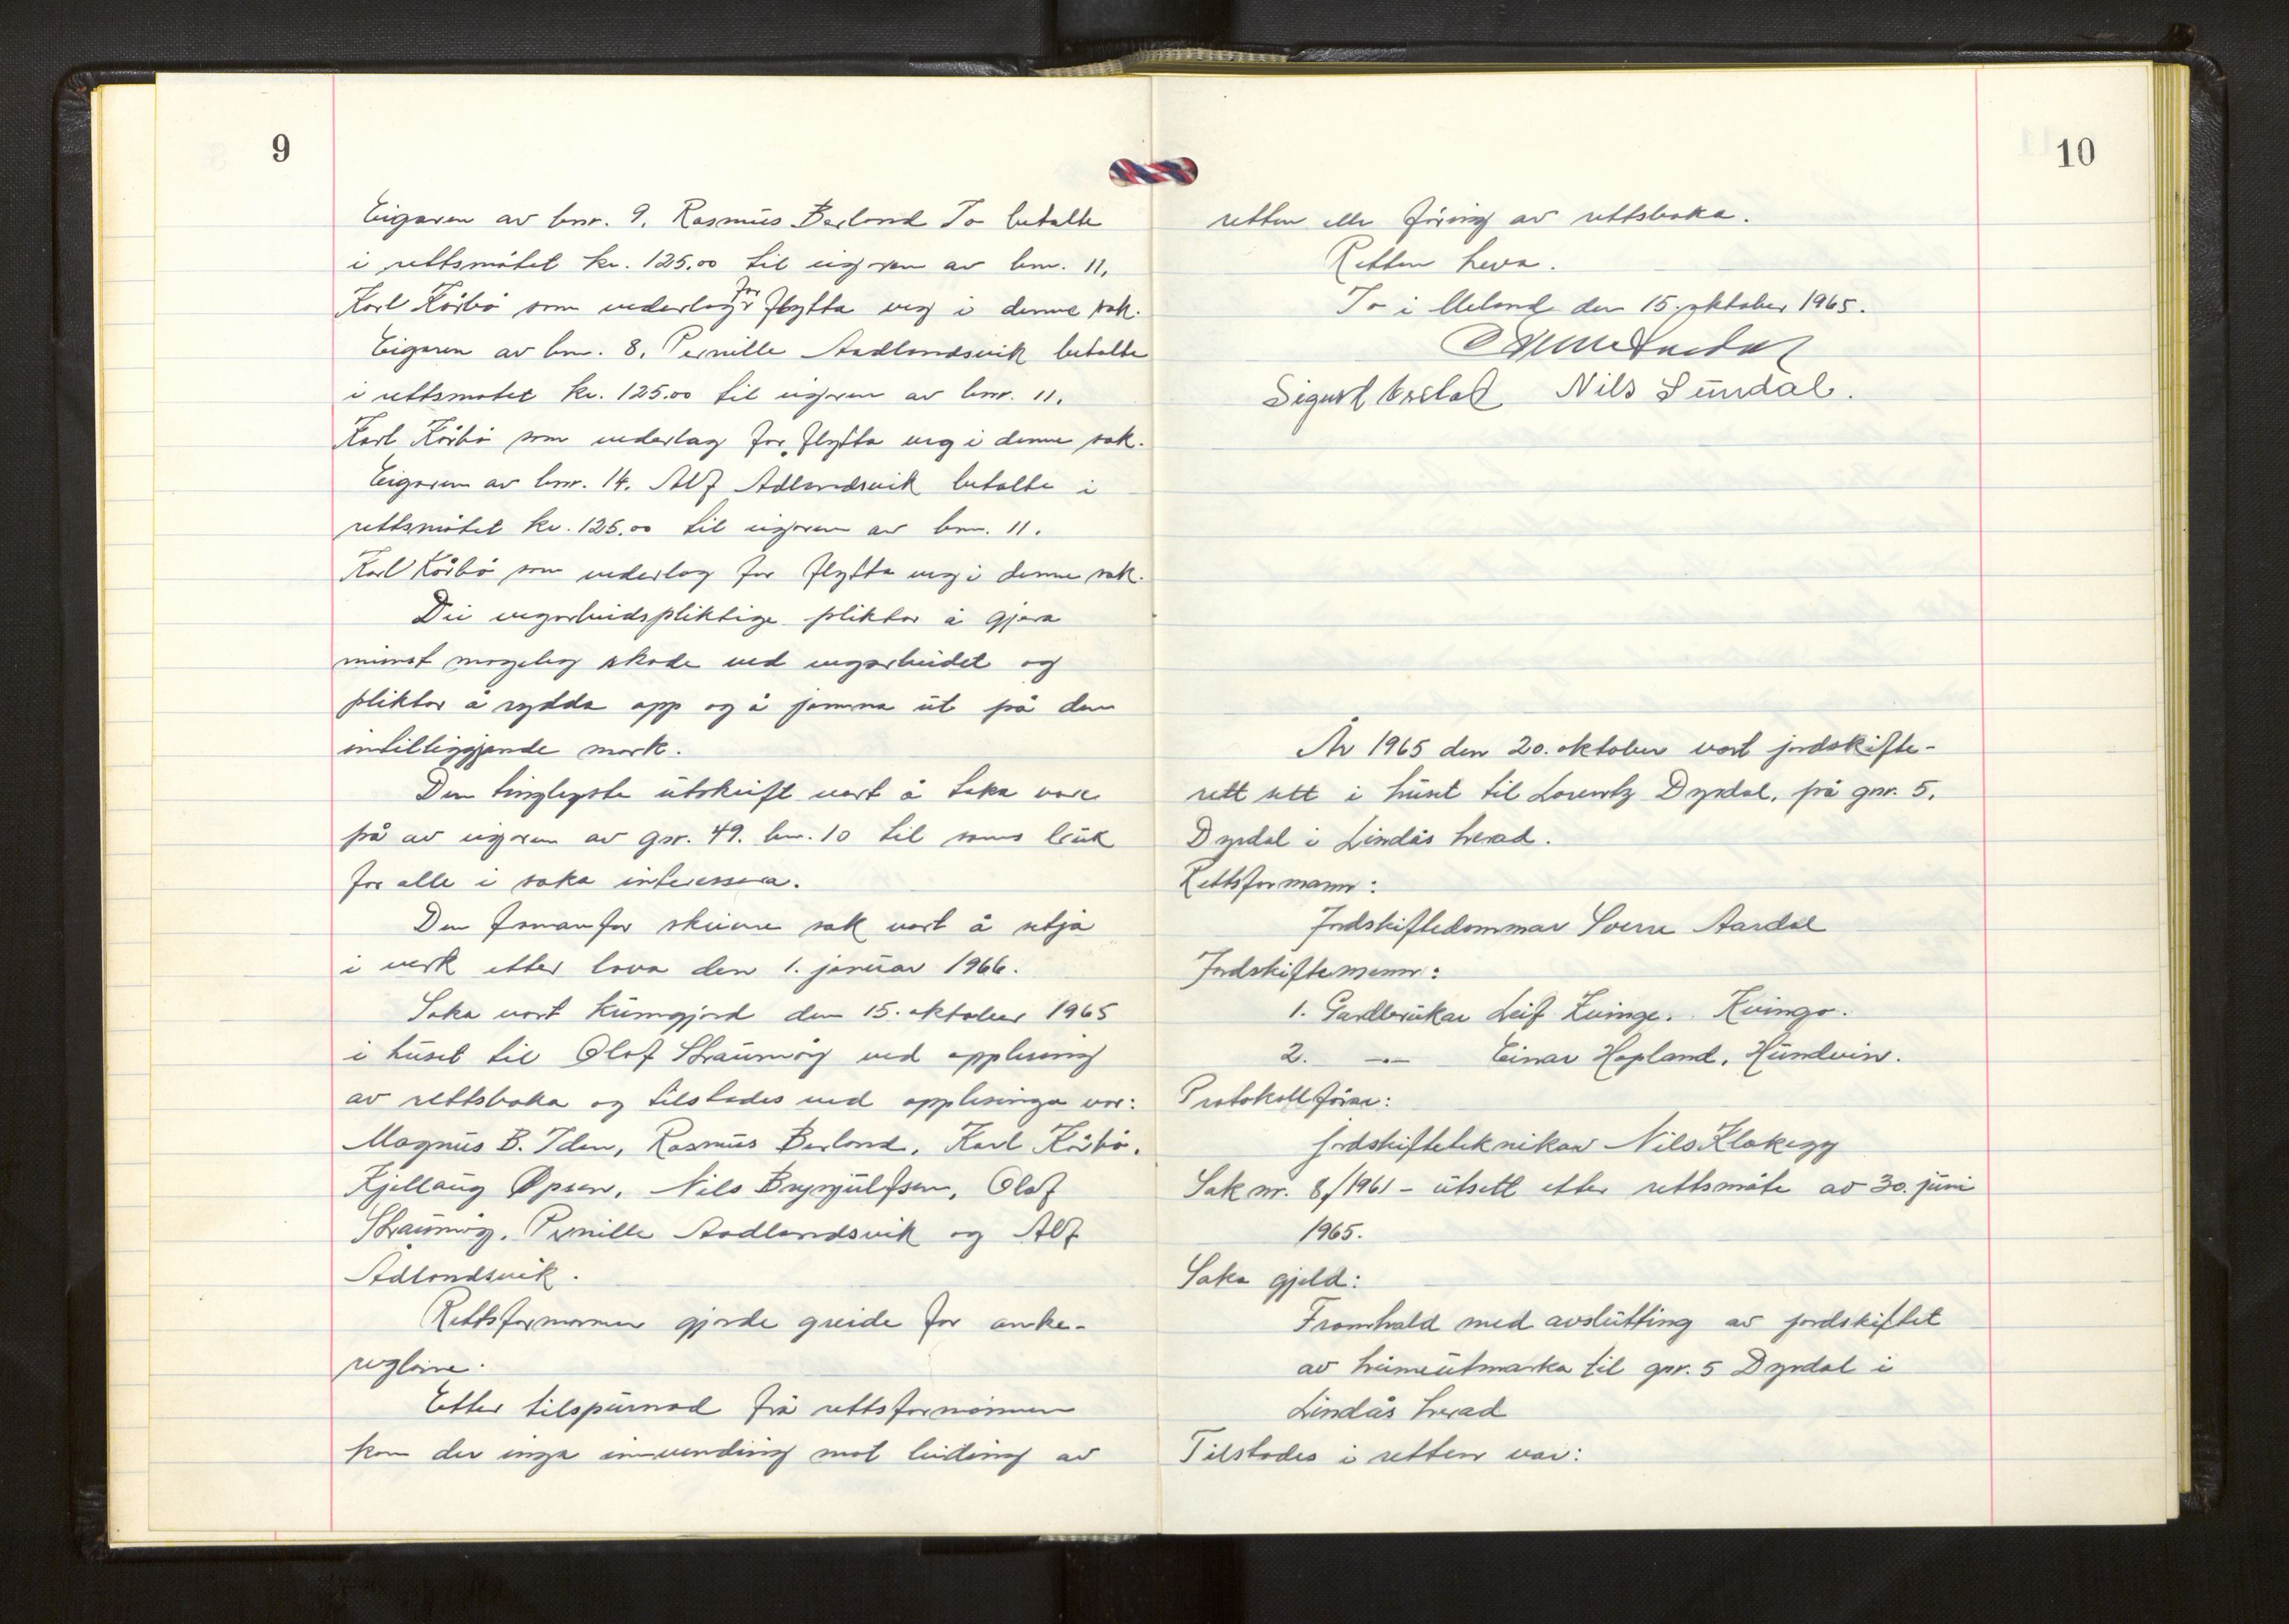 9
Eigaren av bnr. 9, Rasmus Berland To betalte
i rettsmötet kr. 125,00 til eigaren av bnr. 11,
Karl Kårbö som vederlag for flytta veg i denne sak.
Eigaren av bnr. 8, Pernille Aadlandsvik betalte
i rettsmötet kr. 125.00 til eigaren av bnr. 11,
Karl Kårbö som vederlag for flytta veg i denne sak.
Eigaren av bnr. 14, Alf Adlandsvik betalte i
rettsmötet kr. 125,00 til eigaren av bnr. 11.
Karl Kårbö som vederlag for flytta veg i denne sak.
Dei vegarbeidspliktige pliktar å gjera
minst mogeleg skade ved vegarbeidet og
pliktar å rydda opp og å jamna ut på den
intilliggjande mark.
Den tinglegste utskrift vart å taka vare
på av eigaren av gnr. 49. bnr. 10 til sams bruk
for alle i saka interessera.
Den framanfor skrivne sak vart å setja
i verk etter lova den 1. januar 1966.
Saka vart kunngjord den 15. oktober 1965
i huset til Olaf Straumöy ved opplesing
av rettsboka og tilstades ved opplesinga var:
Magnus B. Iden, Rasmus Berland, Karl Kårbö,
Kjellaug Opsen, Nils Brynjulfsen, Olaf
Straumöy, Pernille Aadlandsvik og Alf
Ådlandsvik.
Rettsformannen gjorde greide for anke-
reglane.
Etter tilspurnad frå rettsformannen
kom der inga innvending mot leiding av
10
retten eller föring av rettsboka.
Retten heva.
To i Meland den 15. oktober 1965.
Sigurd Nils Sundal.
År 1965 den 20. oktober vart jordskifte-
rett sett i huset til Lorentz Dyrdal, på gnr. 5,
Dyrdal i Lindås herad.
Rettsformann:
Jordskiftedommar Sverre Aardal
Jordskiftemenn:
1. Gardbrukar Leif Kvinge. Kvingo.
2. —"— Einar Hopland, Hundvin.
Protokollförar:
Jordskifteteknikar Nils Klakegg
Sak nr. 8/1961 - utsett etter rettsmöte av 30. juni
1965.
Saka gjeld:
Framhald med avslutting av jordskiftet
av heimeutmarka til gnr. 5 Dyrdal i
Lindås herad
Tilstades i retten var: